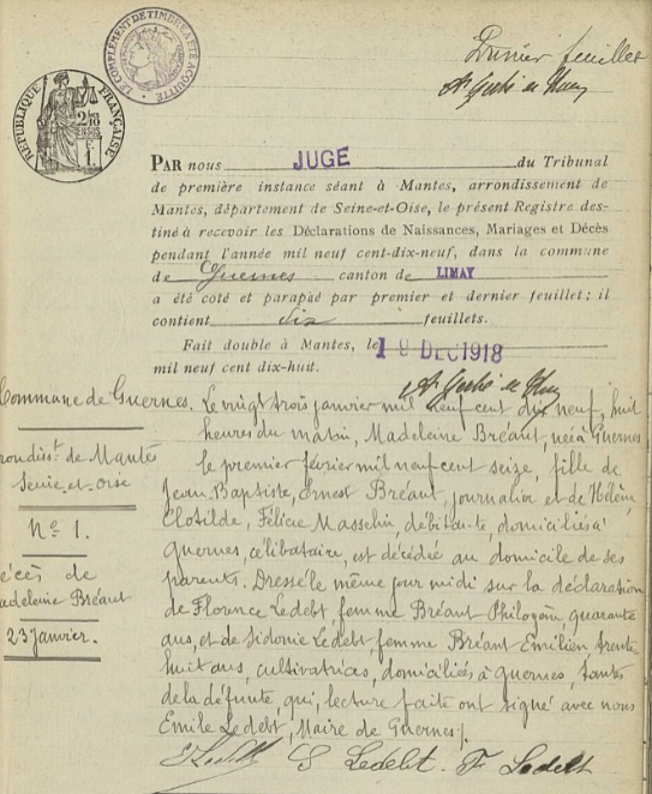 LE COMPLÉMENT DE TIMBRE A ÉTÉ ACQUITTÉ
RÉPUBLIQUE FRANÇAISE
Premier feuillet
PAR nous JUGE du Tribunal
de première instance séant à Mantes, arrondissement de
Mantes, département de Seine-et-Oise, le présent Registre des-
tiné à recevoir les Déclarations de Naissances, Mariages et Décès
pendant l'année mil neuf cent-dix-neuf, dans la commune
de Guernes canton de LIMAY
a été coté et paraphé par premier et dernier feuillet ; il
contient dix feuillets.
Fait double à Mantes, le 19 DEC 1918
mil neuf cent dix-huit.
Commune de Guernes.
rondisst de Mantes
Seine-et-Oise
No 1.
écès de
adeleine Bréant
23 Janvier.
Le vingt trois janvier mil neuf cent dix neuf, huit
heures du matin, Madeleine Bréant, née à Guernes
le premier février mil neuf cent seize, fille de
Jean-Baptiste, Ernest Bréant, journalier et de Hélène,
Clotilde, Félicie Masselin, débitante, domiciliés à
Guernes, célibataire, est décédée au domicile de ses
parents. Dressé le même jour midi sur la déclaration
de Florence Ledebt, femme Bréant Philogène, quarante
ans, et de Sidonie Ledebt, femme Bréant Emilien, trente-
huit ans, cultivatrices, domiciliées à Guernes, tantes
de la défunte, qui, lecture faite ont signé avec nous
Emile Ledebt, Maire de Guernes.
E Ledebt S Ledebt. F Ledebt